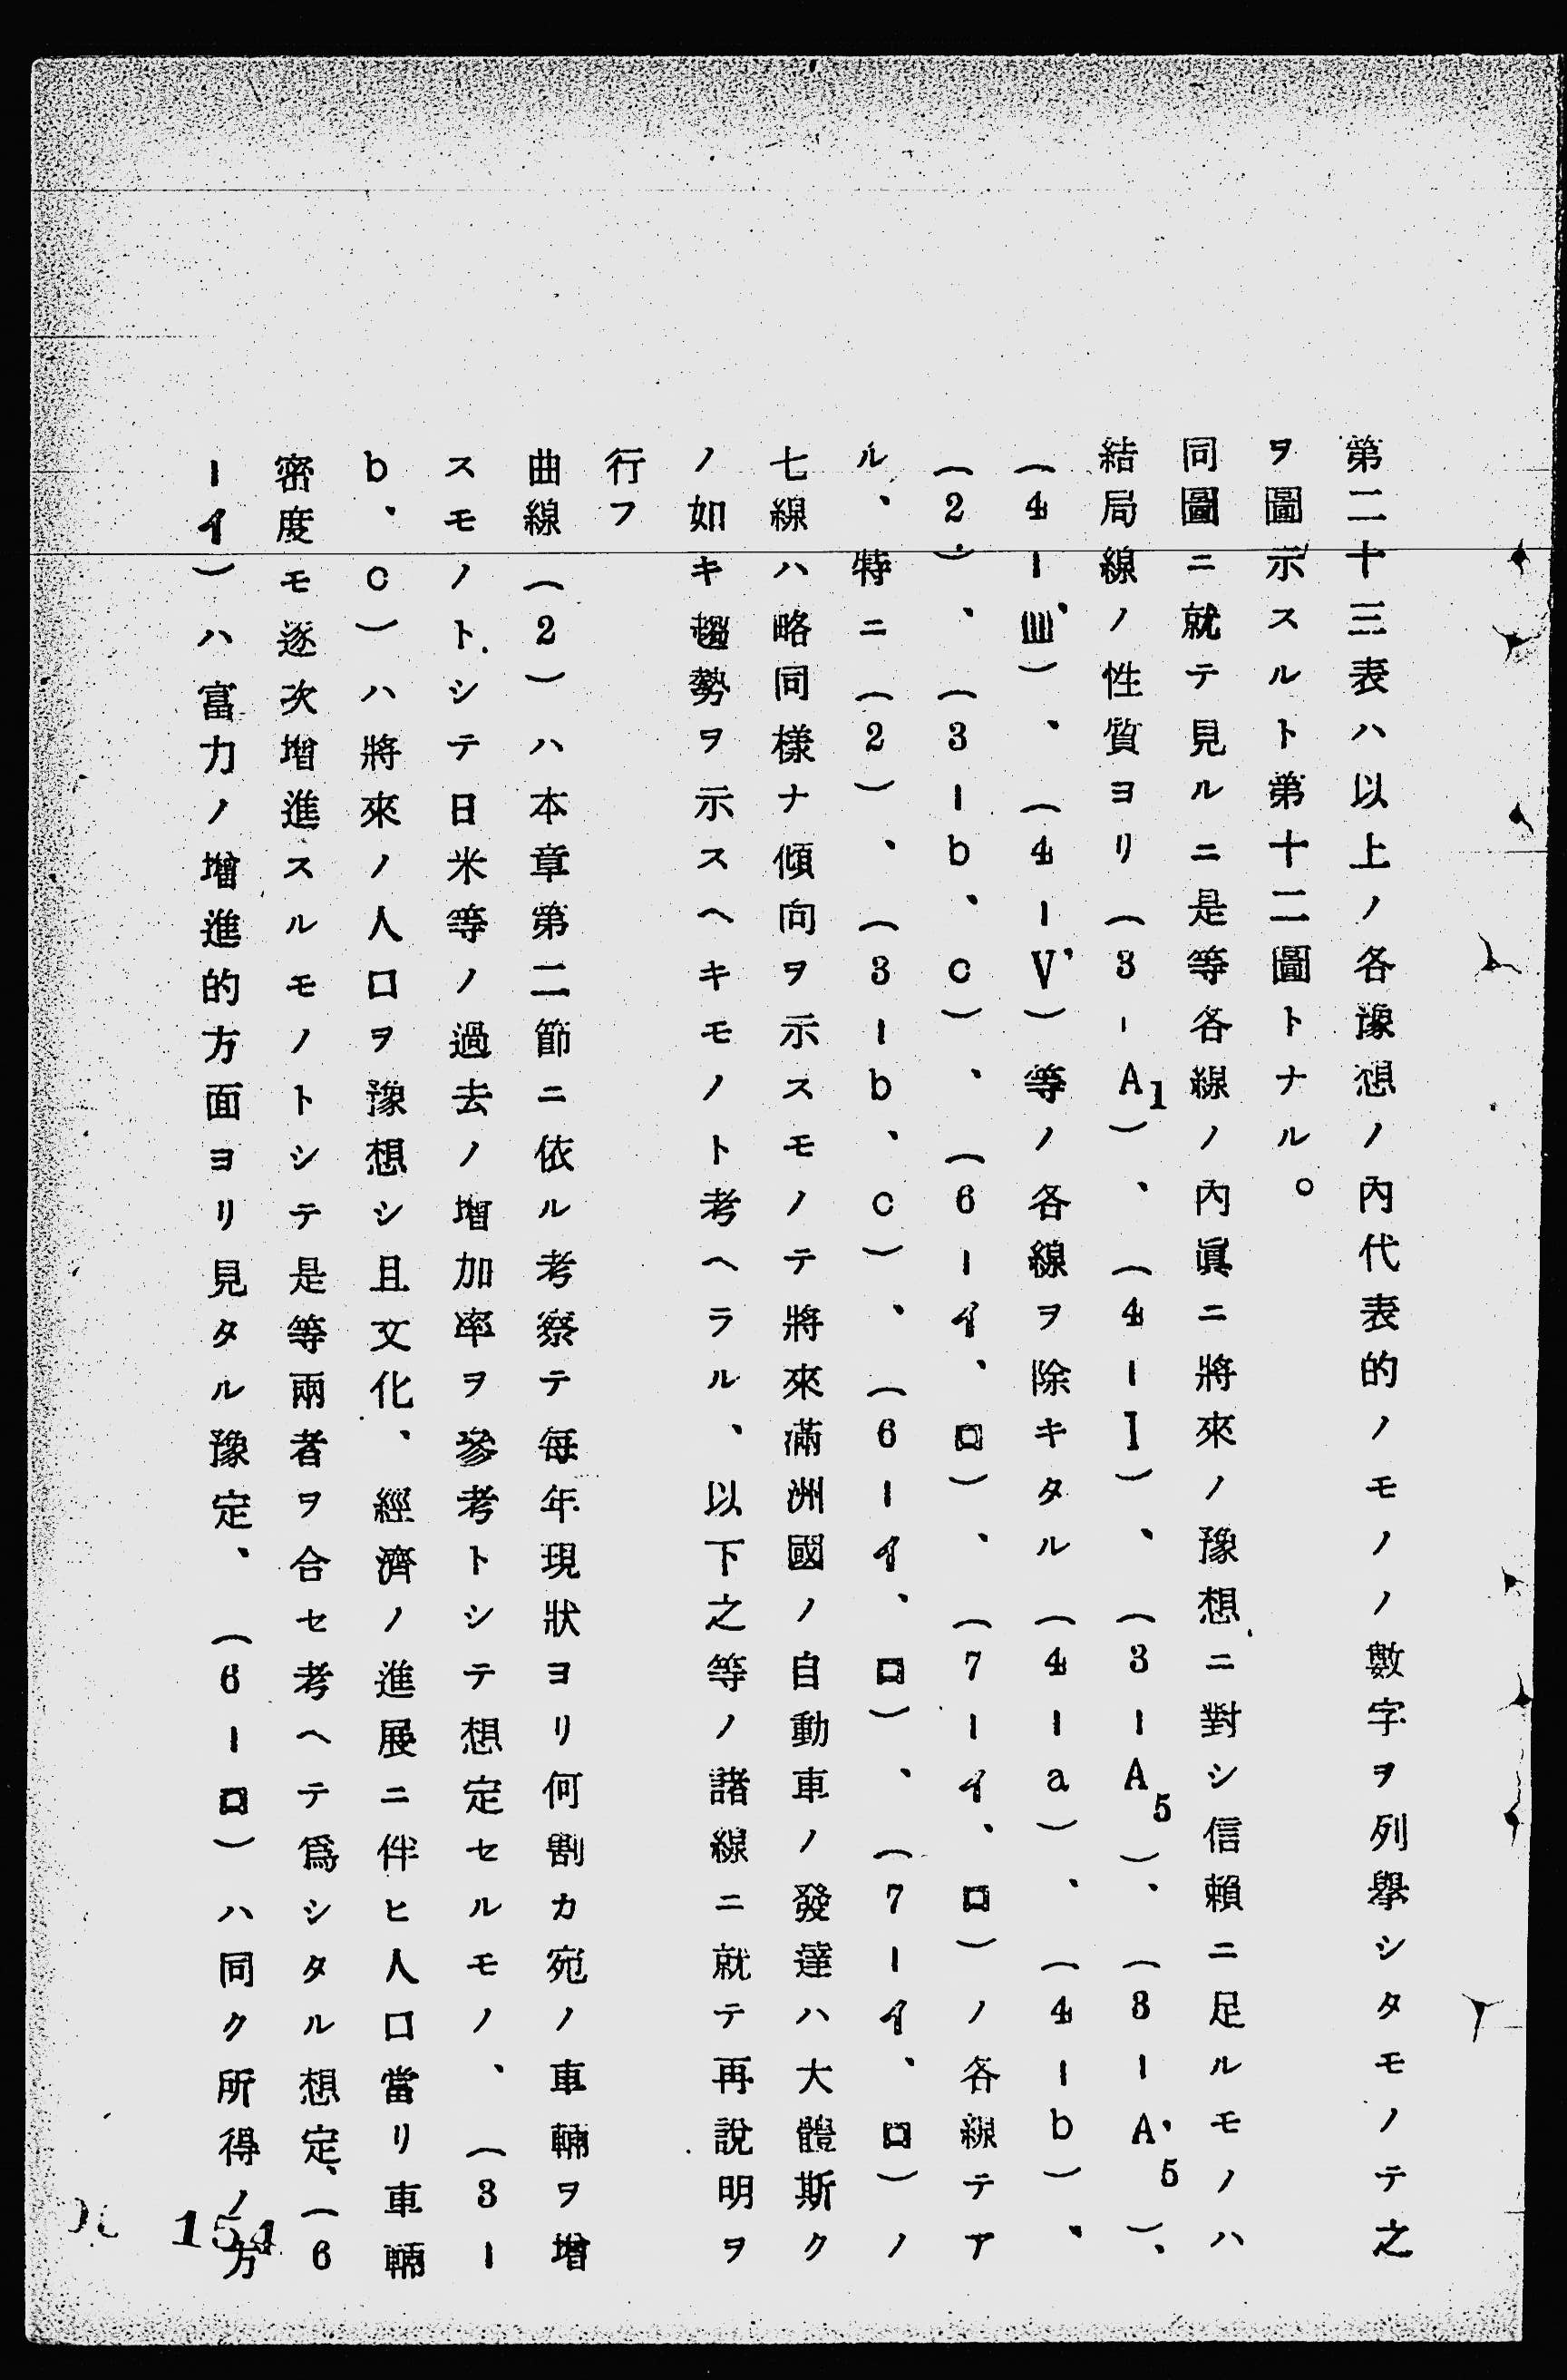 第二十三表ハ以上ノ各豫想ノ內代表的ノモノノ數字ヲ列擧シタモノテ之
ヲ圖示スルト第十二圖トナル。
同圖ニ就テ見ルニ是等各線ノ內眞ニ將來ノ豫想ニ對シ信賴ニ足ルモノハ
結局線ノ性質ヨリ(3-A1)、(4-I)、(3-A5)、(3-A'5)、
(4-Ⅲ')、(4-V')等ノ各線ヲ除キタル(4-a)、(4-b)、
(2')、(3-b、c)、(6-イ、ロ)、(7-イ、ロ)ノ各線テア
ル、特ニ(2)、(3-b、c)、(6-イ、ロ)、(7-イ、ロ)ノ
七線ハ略同樣ナ傾向ヲ示スモノテ將來滿洲國ノ自動車ノ發達ハ大體斯ク
ノ如キ趨勢ヲ示スヘキモノト考ヘラル、以下之等ノ諸線ニ就テ再說明ヲ
行フ
曲線(2)ハ本章第二節ニ依ル考察テ每年現狀ヨリ何割カ宛ノ車輛ヲ增
スモノトシテ日米等ノ過去ノ增加率ヲ參考トシテ想定セルモノ、(3-
b、c)ハ將來ノ人口ヲ豫想シ且文化、經濟ノ進展ニ伴ヒ人口當リ車輛
密度モ逐次增進スルモノトシテ是等兩者ヲ合セ考ヘテ爲シタル想定、(6
-イ)ハ富力ノ增進的方面ヨリ見タル豫定、(6-ロ)ハ同ク所得ノ方
154